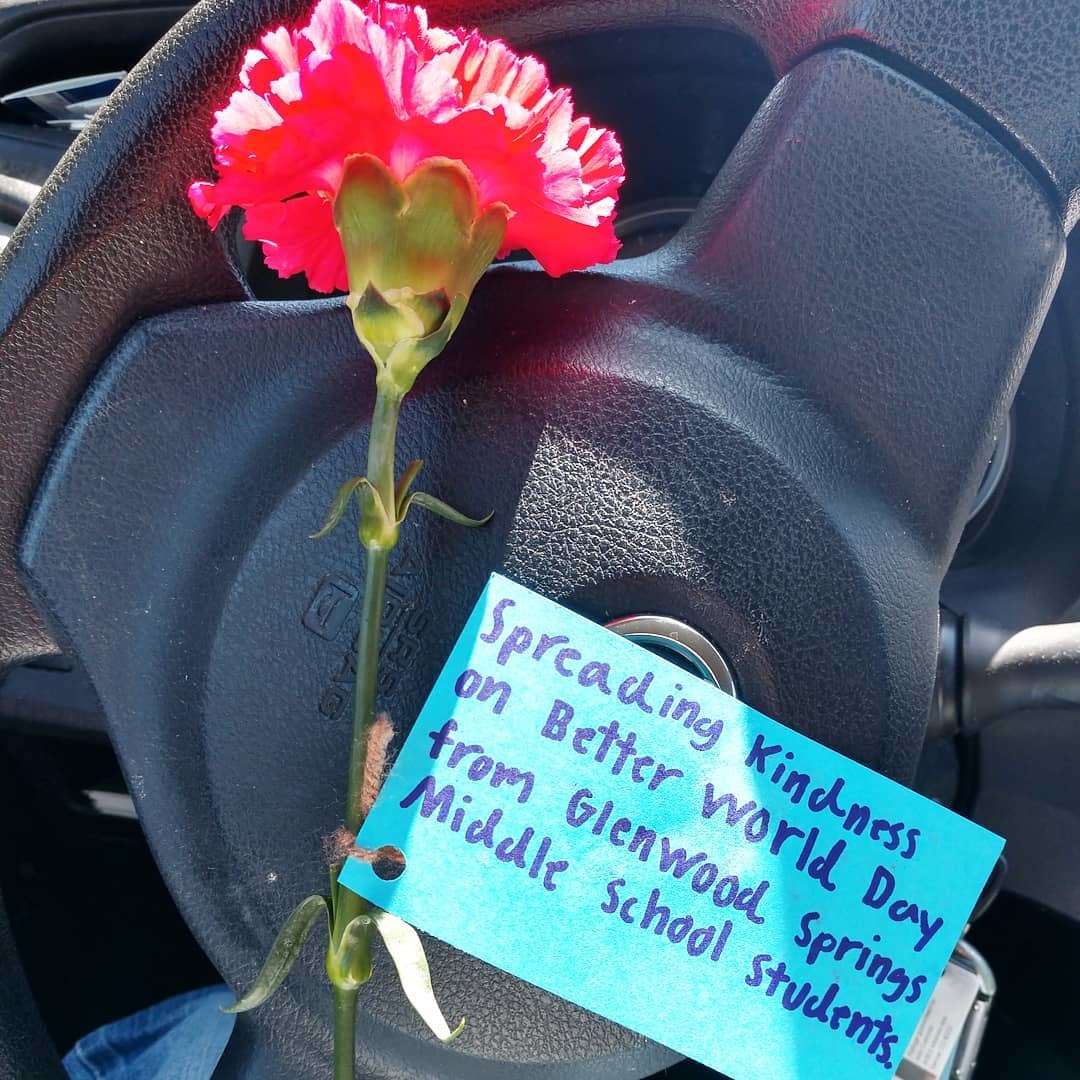 Spreading Kindness
on Better World Day
from Glenwood Springs
Middle School Students.